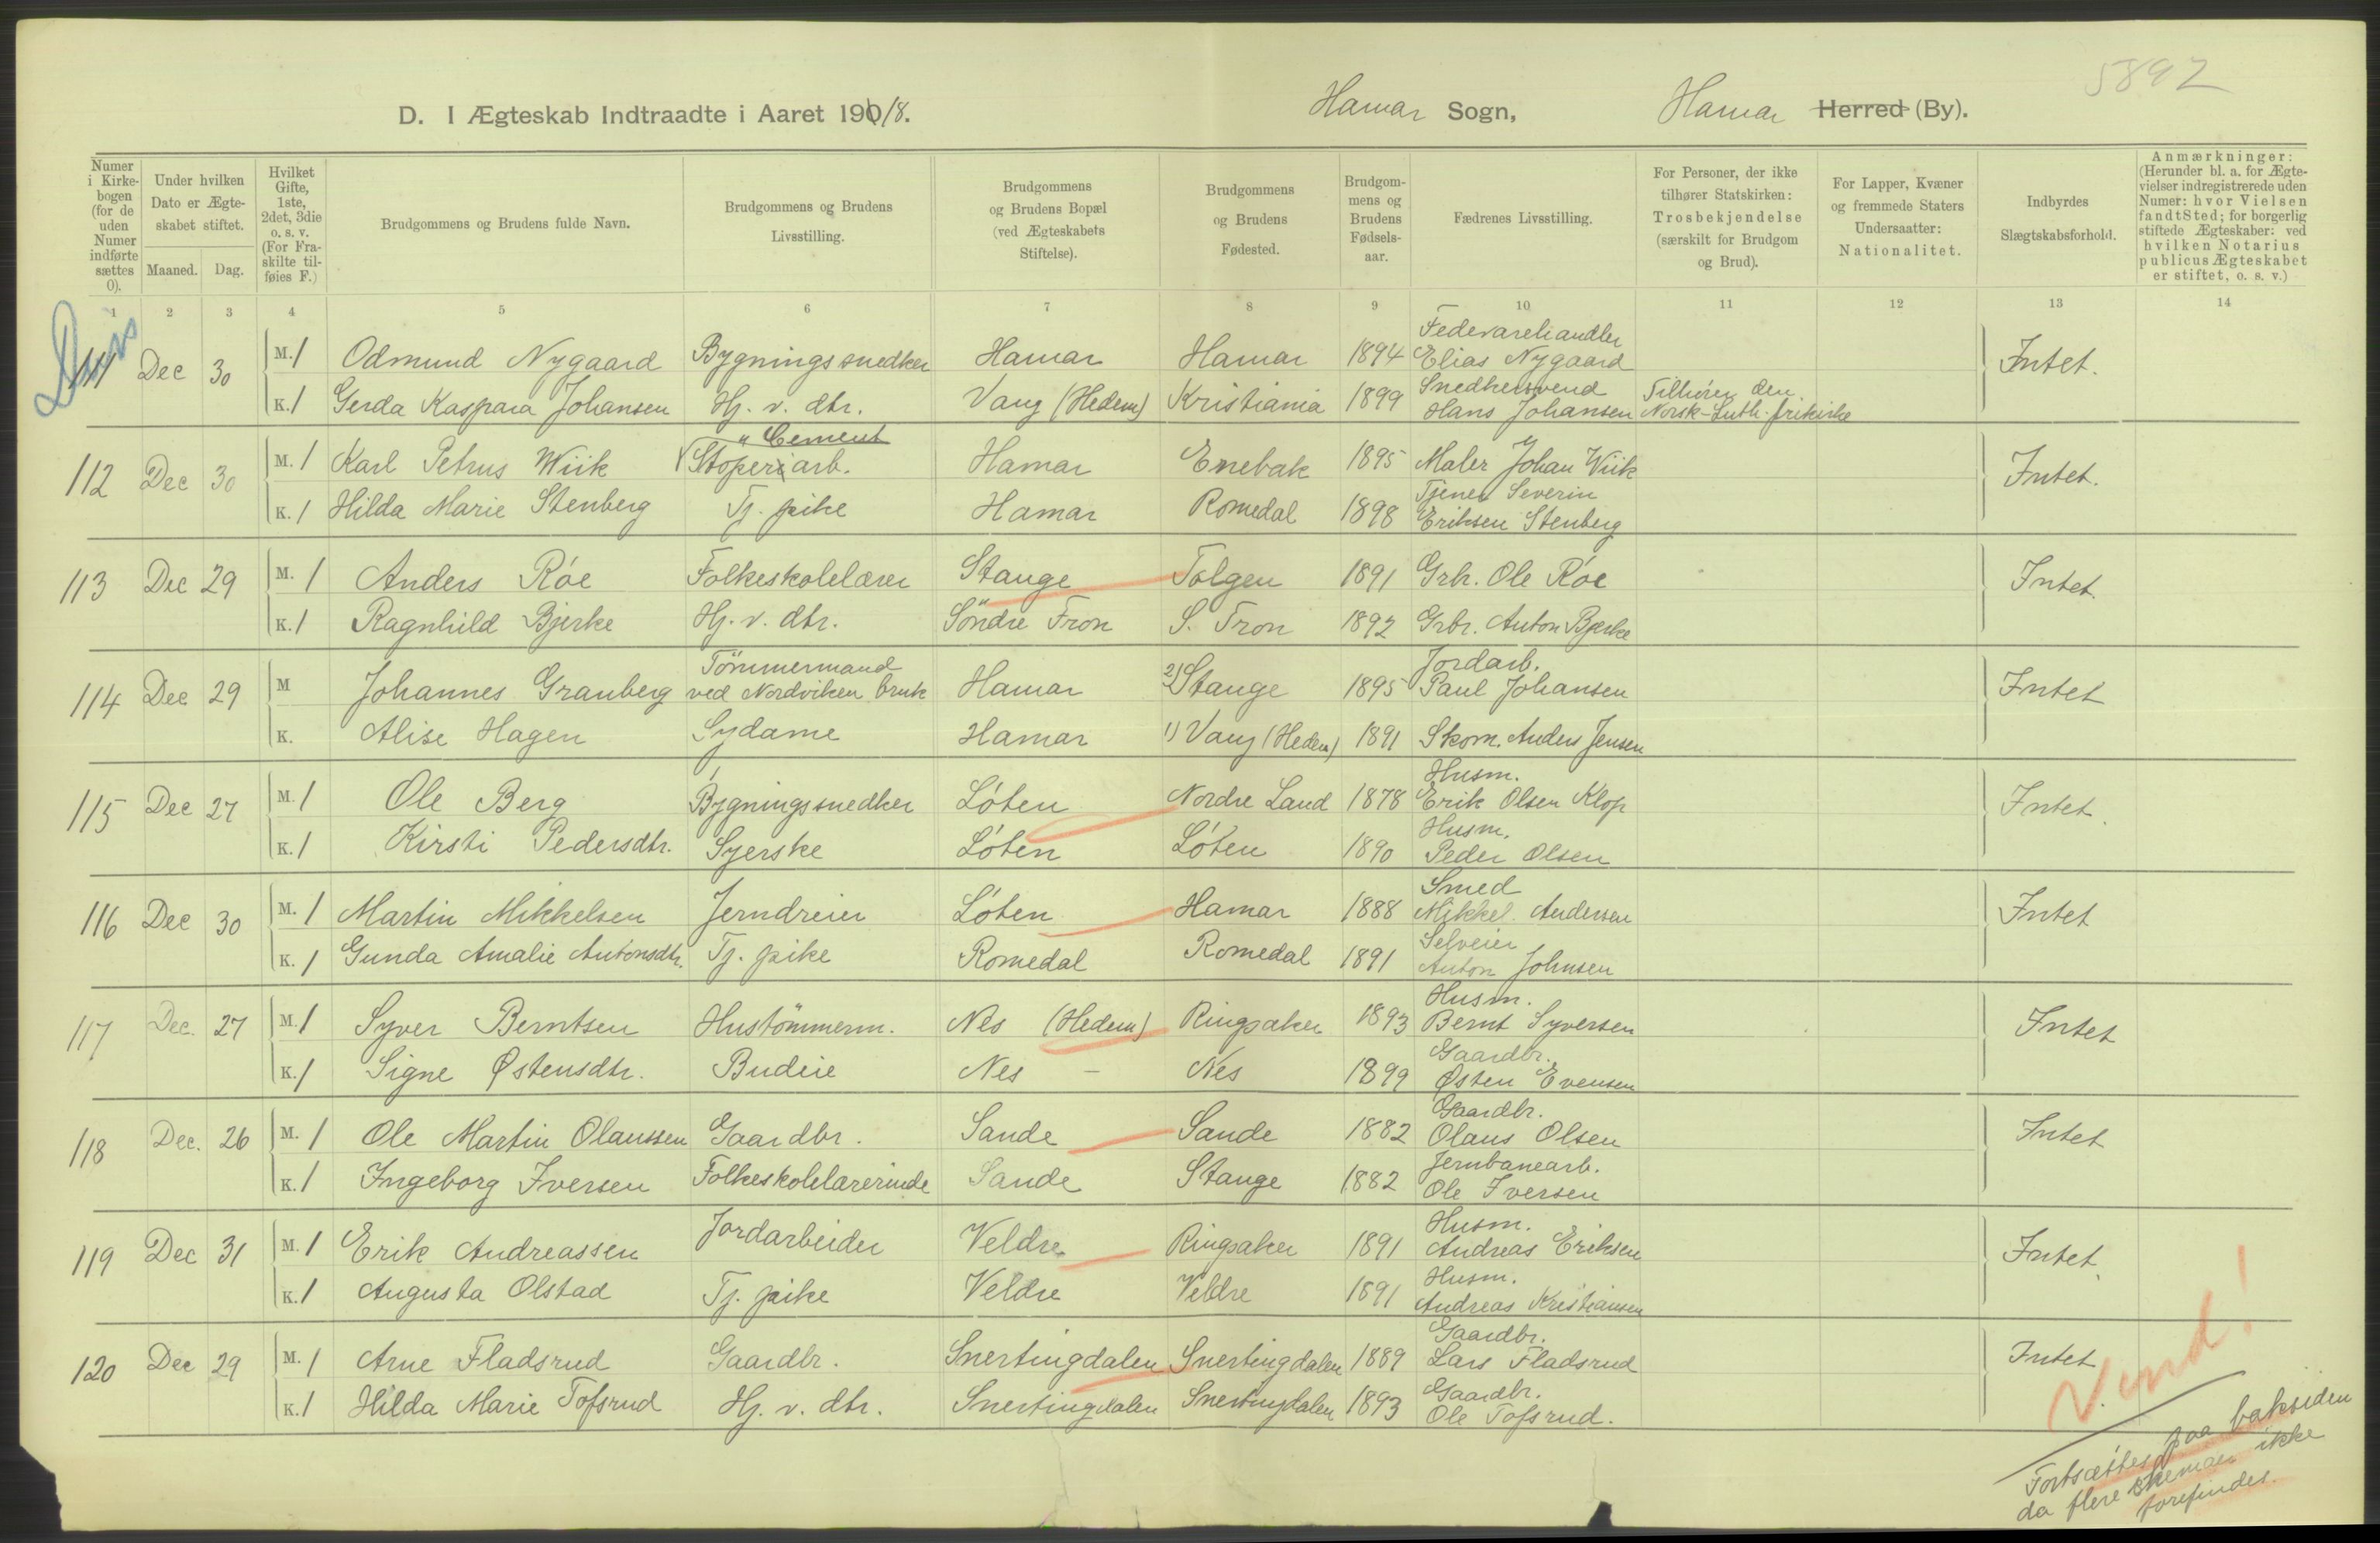 5892
D. I Ægteskab Indtraadte i Aaret 1918. Hamar Sogn, Hamar Herred (By).
Numer i Kirkebogen (for de uden Numer indførte sættes 0).
Under hvilken Dato er Ægteskabet stiftet.
Maaned. Dag.
Hvilket Gifte, 1ste, 2det, 3die o. s. v. (For Fraskilte tilføies F.)
Brudgommens og Brudens fulde Navn.
Brudgommens og Brudens Livsstilling.
Brudgommens og Brudens Bopæl (ved Ægteskabets Stiftelse).
Brudgommens og Brudens Fødested.
Brudgommens og Brudens Fødselsaar.
Fædrenes Livsstilling.
For Personer, der ikke tilhører Statskirken: Trosbekjendelse (særskilt for Brudgom og Brud).
For Lapper, Kvæner og fremmede Staters Undersaatter: Nationalitet.
Indbyrdes Slægtskabsforhold.
Anmærkninger: (Herunder bl. a. for Ægtevielser indregistrerede uden Numer: hvor Vielsen fandt Sted; for borgerlig stiftede Ægteskaber: ved hvilken Notarius publicus Ægteskabet er stiftet, o. s. v.)
1 2 3 4 5 6 7 8 9 10 11 12 13 14
111 Dec 30 M. 1 Odmund Nygaard Bygningssnedker Hamar Hamar 1894 Fedevarehandler Elias Nygaard Intet.
K. 1 Gerda Kaspara Johansen Hj. v. dtr. Vang (Hedem) Kristiania 1899 Snedkersvend Hans Johansen Tilhører den Norsk-Luth. frikirke
112 Dec 30 M. 1 Karl Petrus Wiik Cement Støperiarb. Hamar Enebak 1895 Maler Johan Wiik Intet.
K. 1 Hilda Marie Stenberg Tj. pike Hamar Romedal 1898 Tjener Severin Eriksen Stenberg
113 Dec 29 M. 1 Anders Róe Folkeskolelærer Stange Tolgen 1891 Grbr. Ole Róe Intet.
K. 1 Ragnhild Bjerke Hj. v. dtr. Söndre Fron S. Fron 1892 Grbr. Anton Bjerke
114 Dec 29 M Johannes Granberg Tömmermand ved Nordviken bruk Hamar 2) Stange 1895 Jordarb. Paul Johansen Intet
K. Alise Hagen Sydame Hamar 1) Vang (Hedem) 1891 Skom. Anders Jensen
115 Dec 27 M. 1 Ole Berg Bygningssnedker Lóten Nordre Land 1878 Husm. Erik Olsen Klop Intet.
K. 1 Kirsti Pedersdtr. Syerske Lóten Lóten 1890 Husm. Peder Olsen
116 Dec 30 M. 1 Martin Mikkelsen Jerndreier Lóten Hamar 1888 Smed Mikkel Andersen Intet
K. 1 Gunda Amalie Antonsdtr. Tj. pike Romedal Romedal 1891 Selveier Anton Johnsen
117 Dec. 27 M. 1 Syver Berntsen Hustömmerm. Nes (Hedem) Ringsaker 1893 Husm. Bernt Syversen Intet
K. 1 Signe Østensdtr. Budeie Nes - Nes 1899 Gaardbr. Østen Evensen
118 Dec. 26 M. 1 Ole Martin Olaussen Gaardbr. Sande Sande 1882 Gaardbr. Olaus Olsen Intet
K. 1 Ingeborg Iversen Folkeskolelærerinde Sande Stange 1882 Jernbanearb. Ole Iversen
119 Dec 31 M. 1 Erik Andreassen Jordarbeider Veldre Ringsaker 1891 Husm. Andreas Eriksen Intet
K. 1 Augusta Olstad Tj. pike Veldre Veldre 1891 Husm. Andreas Kristiansen
120 Dec 29 M. 1 Arne Fladsrud Gaardbr. Snertingdalen Snertingdalen 1889 Gaardbr. Lars Fladsrud Intet
K. 1 Hilda Marie Tofsrud Hj. v. dtr. Snertingdalen Snertingdalen 1893 Gaardbr. Ole Tofsrud.
Vend!
Fortsættes paa baksiden
da flere skemaer ikke
forefindes.